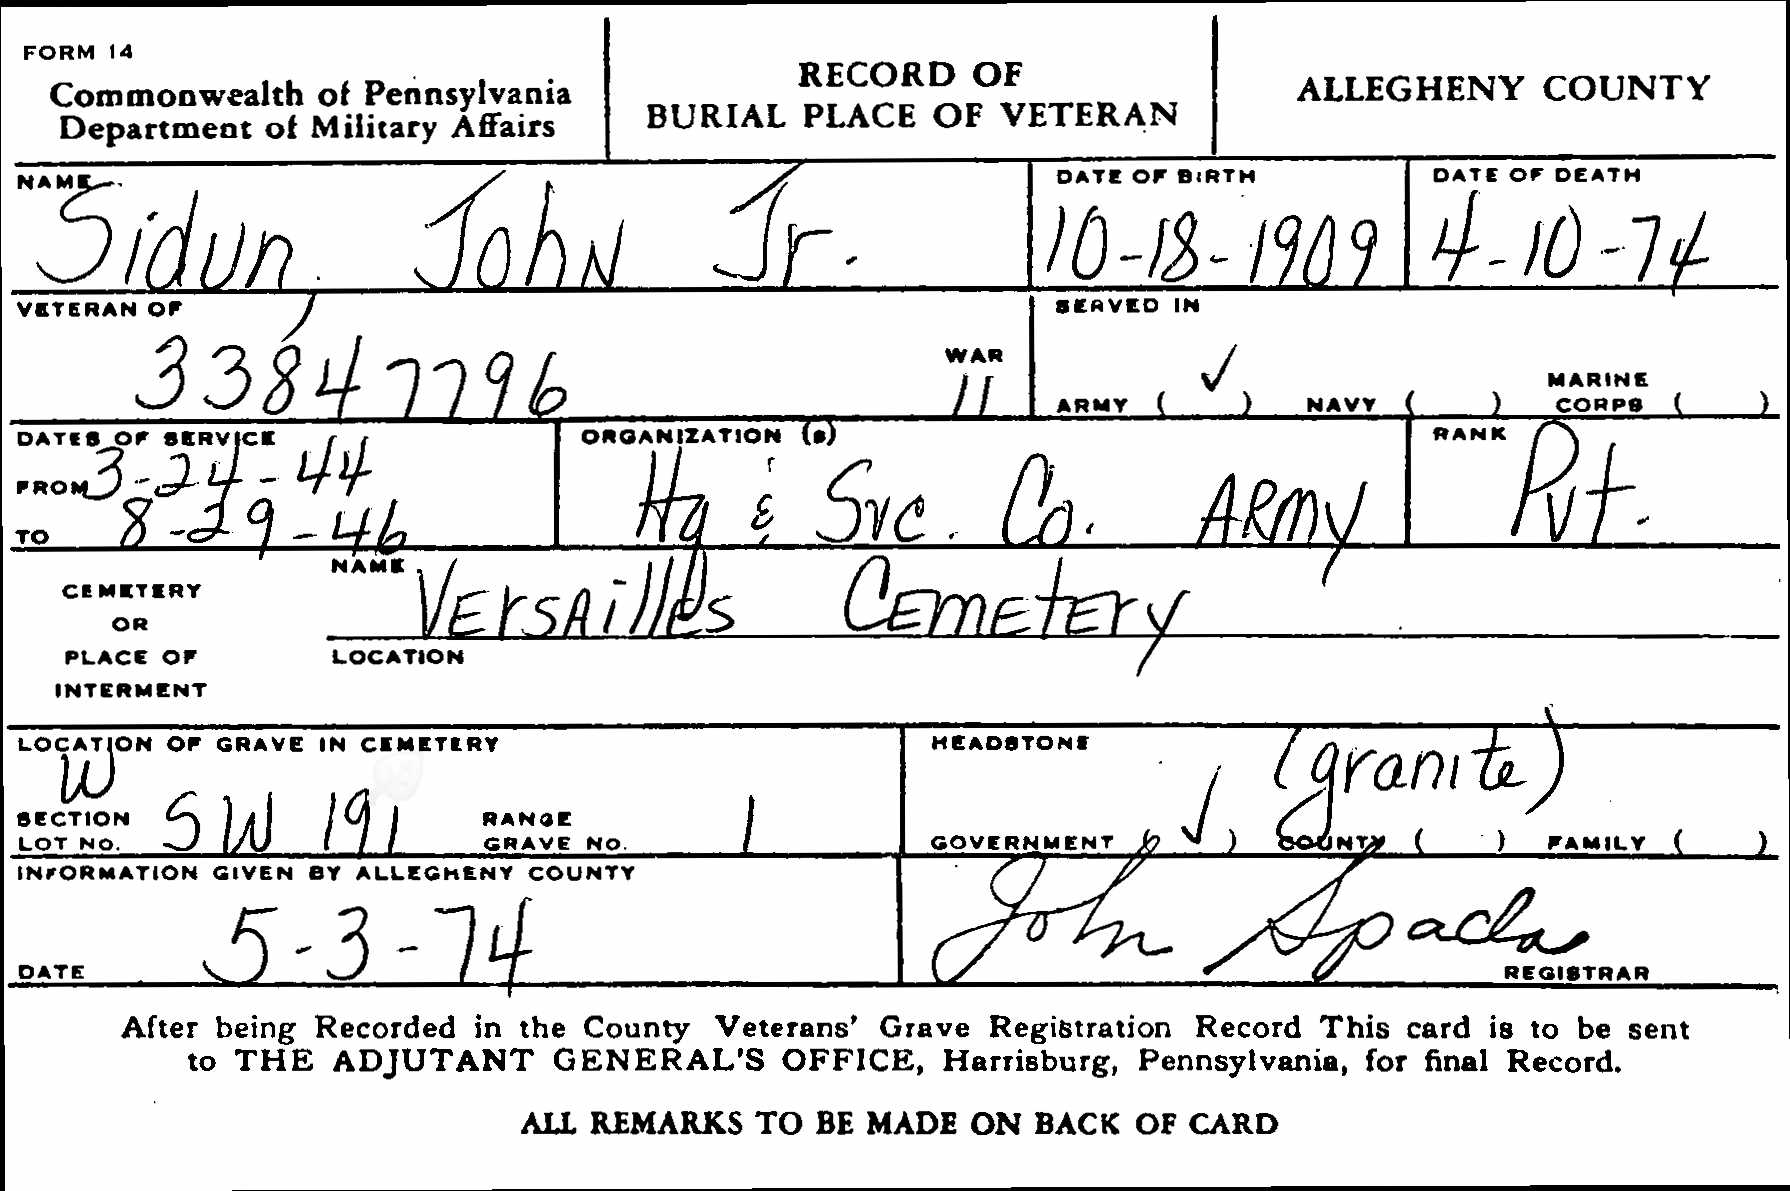 FORM 14
Commonwealth of Pennsylvania
Department of Military Affairs
RECORD OF
BURIAL PLACE OF VETERAN
ALLEGHENY COUNTY
NAME
Sidun, John Jr.
DATE OF BIRTH
10-18-1909
DATE OF DEATH
4-10-74
VETERAN OF
33847796
WAR
11
SERVED IN
ARMY ( ✓ ) NAVY ( ) MARINE CORPS ( )
DATES OF SERVICE
FROM 3-24-44
TO 8-29-46
ORGANIZATION (s)
Hq & Svc. Co. ARMY
RANK
Pvt.
CEMETERY
OR
PLACE OF
INTERMENT
NAME
VErsAillEs CEmETEry
LOCATION
LOCATION OF GRAVE IN CEMETERY
W
SECTION
LOT NO. SW 191
RANGE
GRAVE NO. 1
HEADSTONE
(granite)
GOVERNMENT ( ✓ ) COUNTY ( ) FAMILY ( )
INFORMATION GIVEN BY ALLEGHENY COUNTY
DATE 5-3-74
John Spada
REGISTRAR
After being Recorded in the County Veterans' Grave Registration Record This card is to be sent
to THE ADJUTANT GENERAL'S OFFICE, Harrisburg, Pennsylvania, for final Record.
ALL REMARKS TO BE MADE ON BACK OF CARD